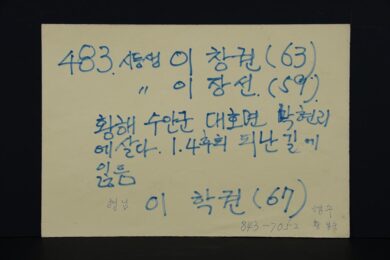 483. 시동생 이 창권 (63)
〃 이 장선. (59).
황해 수안군 대호면 학현리
에살다. 1.4후퇴 피난길에
잃음
형님 이 학권 (67)
843-7052